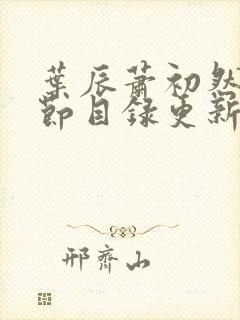 葉辰蕭初然
節目錄更新
邢齊山